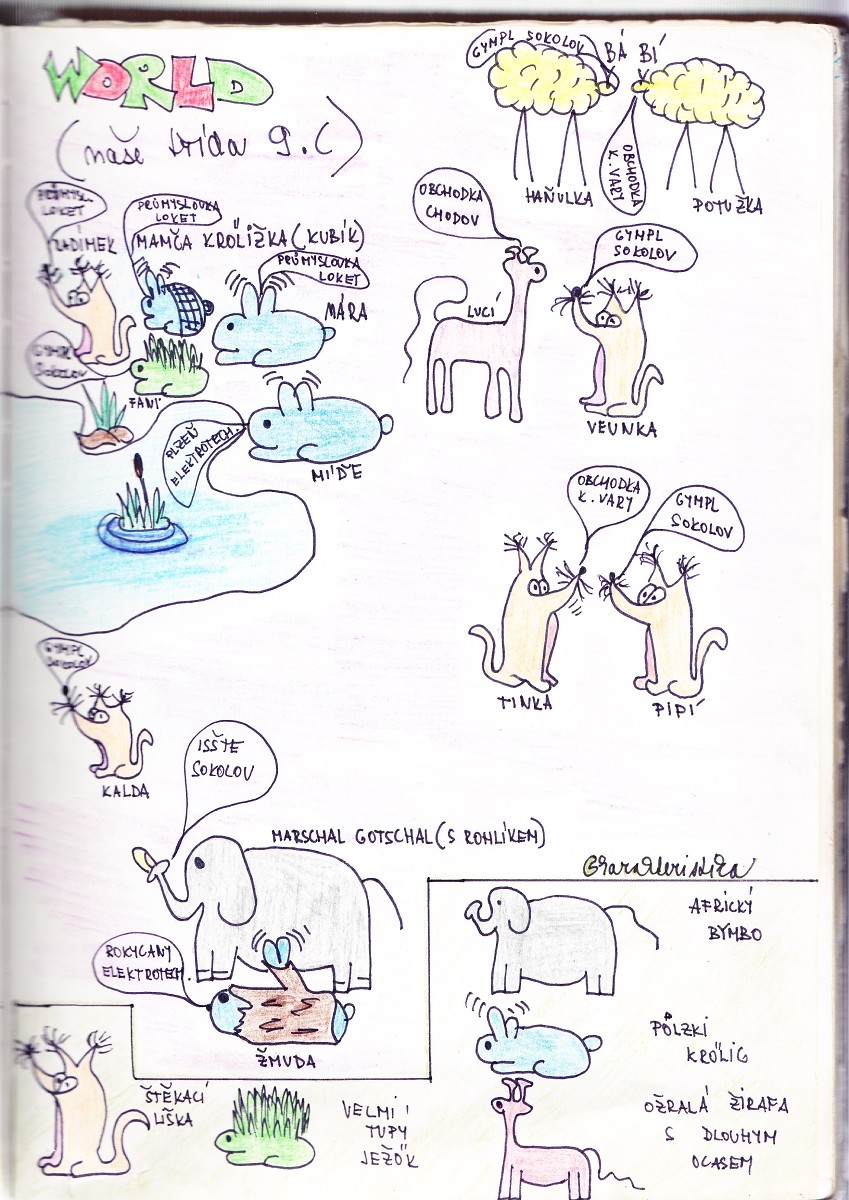 WORLD
(naše třída 9.C)
GYMPL SOKOLOV
BÁ BÍ
OBCHODKA
K. VARY
HAŇULKA
POTUŽKA
PRŮMYSL.
LOKET
LADÍMEK
PRŮMYSLOVKA
LOKET
MAMČA KRÖLIŽKA (KUBÍK)
PRŮMYSLOVKA
LOKET
MÁRA
GYMPL
SOKOLOV
FANÍ
OBCHODKA
CHODOV
LUCÍ
GYMPL
SOKOLOV
VEUNKA
PLZEŇ
ELEKTROTECH.
MIĎE
OBCHODKA
K. VARY
GYMPL
SOKOLOV
TINKA
PIPÍ
GYMPL
SOKOLOV
KALDA
ISŠTE
SOKOLOV
MARSCHAL GOTSCHAL (S ROHLÍKEM)
ROKYCANY
ELEKTROTECH.
ŽMUDA
Charakteristika
AFRICKÝ
BYMBO
PŮLZKÍ
KRÖLIG
OŽRALÁ ŽIRAFA
S DLOUHYM
OCASEM
ŠTĚKACÍ
LIŠKA
VELMI
TUPY
JEŽÖK